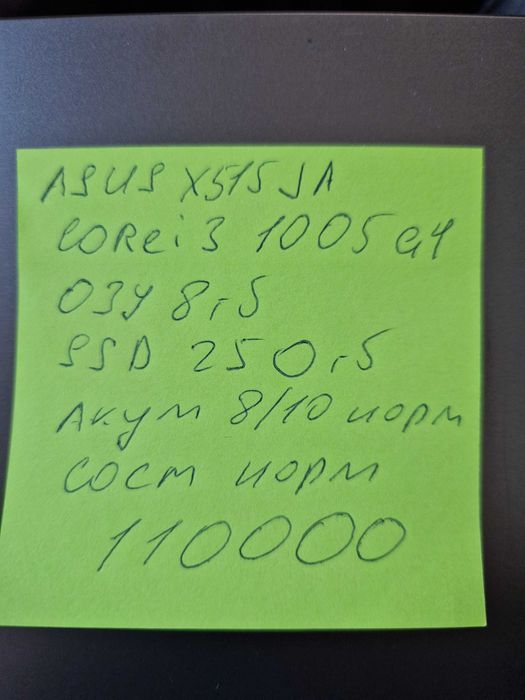 ASUS X515JA
CORei3 1005G4
ОЗУ 8гб
SSD 250гб
Акум 8/10 норм
сост норм
110000